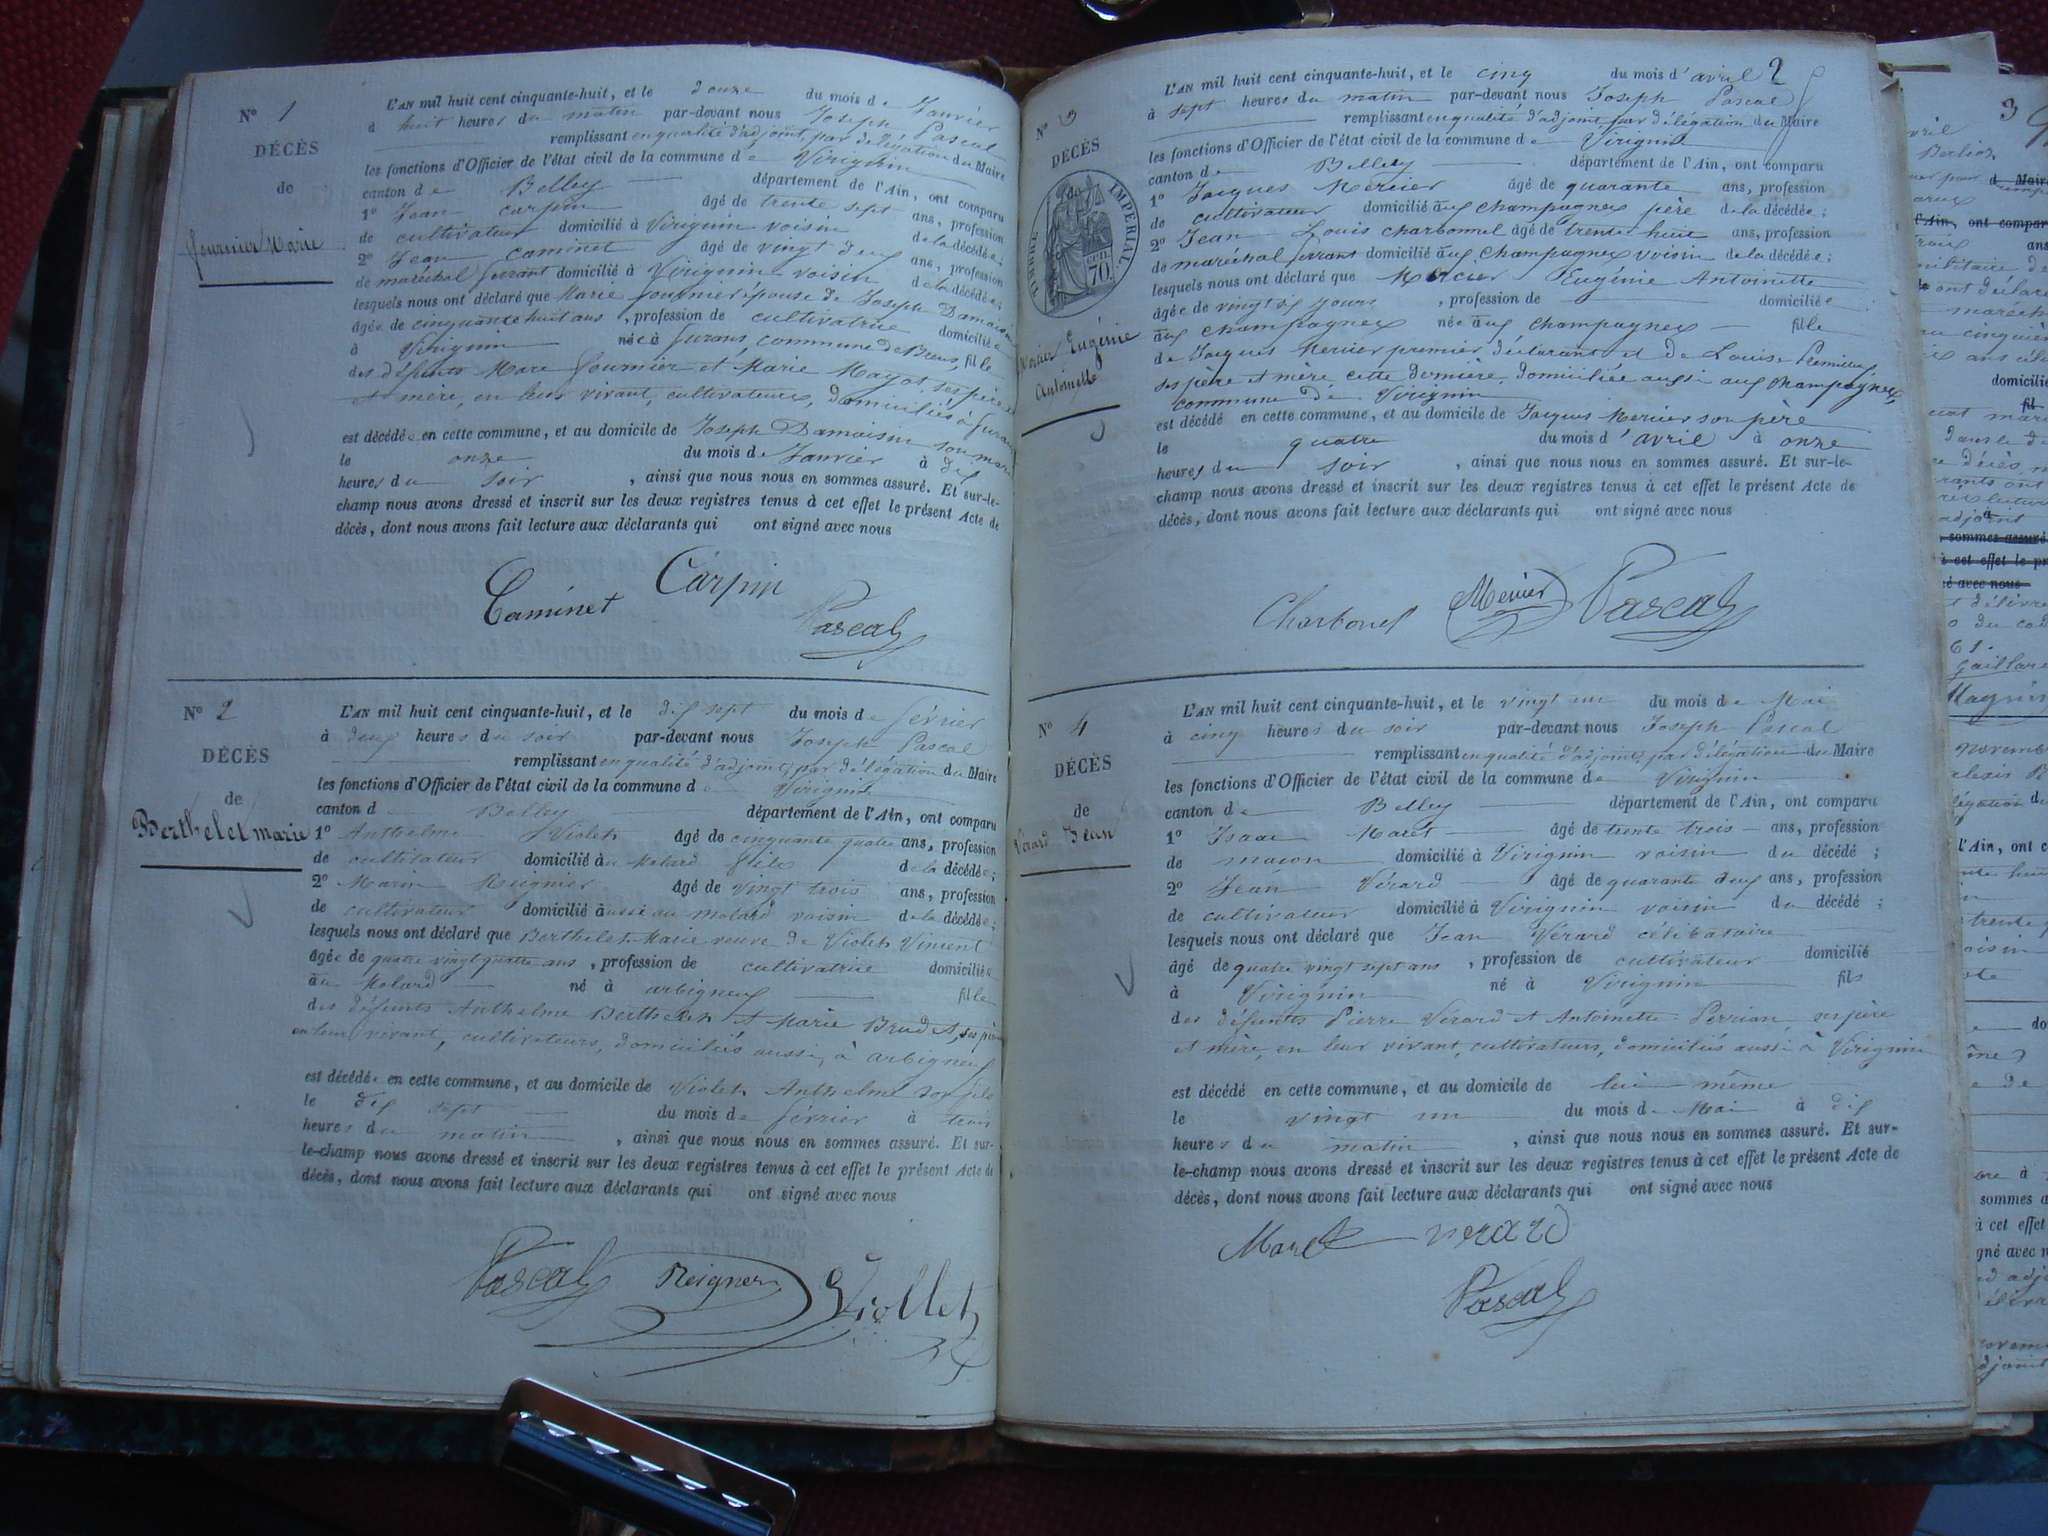 N° 1
DÉCÈS
de
fournier Marie
L'AN mil huit cent cinquante-huit, et le douze du mois de Janvier
à huit heures du matin par-devant nous Joseph Pascal
remplissant en qualité d'adjoint, par délégation du Maire
les fonctions d'Officier de l'état civil de la commune de Virignin
canton de Belley département de l'Ain, ont comparu
1° Jean Carpin âgé de trente sept ans, profession
de cultivateur domicilié à Virignin voisin de la décédée;
2° Jean Caminet âgé de vingt deux ans, profession
de maréchal ferrant domicilié à Virignin voisin de la décédée;
lesquels nous ont déclaré que Marie fournier épouse de Joseph Damaisin
âgée de cinquante huit ans, profession de cultivatrice domiciliée
à Virignin née à furans, commune de Brens, fille
des défunts Marc fournier et Marie Mayot, ses père
et mère, en leur vivant, cultivateurs, domiciliés à furans
est décédée en cette commune, et au domicile de Joseph Damaisin son mari
le onze du mois de Janvier à dix
heures du soir, ainsi que nous nous en sommes assuré. Et sur-le-
champ nous avons dressé et inscrit sur les deux registres tenus à cet effet le présent Acte de
décès, dont nous avons fait lecture aux déclarants qui ont signé avec nous
Caminet Carpin
Pascal
N° 2
DÉCÈS
de
Berthelet marie
L'AN mil huit cent cinquante-huit, et le dix sept du mois de février
à deux heures du soir par-devant nous Joseph Pascal
remplissant en qualité d'adjoint, par délégation du Maire
les fonctions d'Officier de l'état civil de la commune de Virignin
canton de Belley département de l'Ain, ont comparu
1° Anthelme Violet âgé de cinquante quatre ans, profession
de cultivateur domicilié au Molard fils de la décédée;
2° Marin Reignier âgé de vingt trois ans, profession
de cultivateur domicilié aussi au Molard voisin de la décédée;
lesquels nous ont déclaré que Berthelet Marie veuve de Violet Vincent
âgée de quatre vingt quatre ans, profession de cultivatrice domiciliée
au Molard né à arbignieu fille
des défunts Anthelme Berthelet et Marie Brudet, ses père
en leur vivant, cultivateurs, domiciliés aussi, à arbignieu
est décédée en cette commune, et au domicile de Violet Anthelme son fils
le dix sept du mois de février à trois
heures du matin, ainsi que nous nous en sommes assuré. Et sur-
le-champ nous avons dressé et inscrit sur les deux registres tenus à cet effet le présent Acte de
décès, dont nous avons fait lecture aux déclarants qui ont signé avec nous
Pascal Reigner Viollet
2
N° 3
DÉCÈS
de
TIMBRE IMPÉRIAL
70
Mercier Eugénie
Antoinette
L'AN mil huit cent cinquante-huit, et le cinq du mois d'avril
à sept heures du matin par-devant nous Joseph Pascal
remplissant en qualité d'adjoint par délégation du Maire
les fonctions d'Officier de l'état civil de la commune de Virignin
canton de Belley département de l'Ain, ont comparu
1° Jacques Mercier âgé de quarante ans, profession
de cultivateur domicilié aux champagnes père de la décédée;
2° Jean Louis Charbonnel âgé de trente huit ans, profession
de maréchal ferrant domicilié aux champagnes voisin de la décédée;
lesquels nous ont déclaré que Mercier Eugénie Antoinette
âgée de vingt six jours, profession de domiciliée
aux champagnes née aux champagnes fille
de Jacques Mercier premier déclarant et de Louise
ses père et mère cette dernière, domiciliée aussi aux champagnes,
commune de Virignin
est décédé en cette commune, et au domicile de Jacques Mercier son père
le quatre du mois d'avril à onze
heures du soir, ainsi que nous nous en sommes assuré. Et sur-le-
champ nous avons dressé et inscrit sur les deux registres tenus à cet effet le présent Acte de
décès, dont nous avons fait lecture aux déclarants qui ont signé avec nous
Charbonel Mercier Pascal
N° 4
DÉCÈS
de
Vérard Jean
L'AN mil huit cent cinquante-huit, et le vingt un du mois de Mai
à cinq heures du soir par-devant nous Joseph Pascal
remplissant en qualité d'adjoint, par délégation du Maire
les fonctions d'Officier de l'état civil de la commune de Virignin
canton de Belley département de l'Ain, ont comparu
1° Isaac Maret âgé de trente trois ans, profession
de maçon domicilié à Virignin voisin du décédé;
2° Jean Vérard âgé de quarante deux ans, profession
de cultivateur domicilié à Virignin voisin du décédé;
lesquels nous ont déclaré que Jean Vérard célibataire
âgé de quatre vingt sept ans, profession de cultivateur domicilié
à Virignin né à Virignin fils
des défunts Pierre Vérard et Antoinette Perrian, ses père
et mère, en leur vivant, cultivateurs, domiciliés aussi à Virignin
est décédé en cette commune, et au domicile de lui même
le vingt un du mois de Mai à dix
heures du matin, ainsi que nous nous en sommes assuré. Et sur-
le-champ nous avons dressé et inscrit sur les deux registres tenus à cet effet le présent Acte de
décès, dont nous avons fait lecture aux déclarants qui ont signé avec nous
Maret verard
Pascal
3